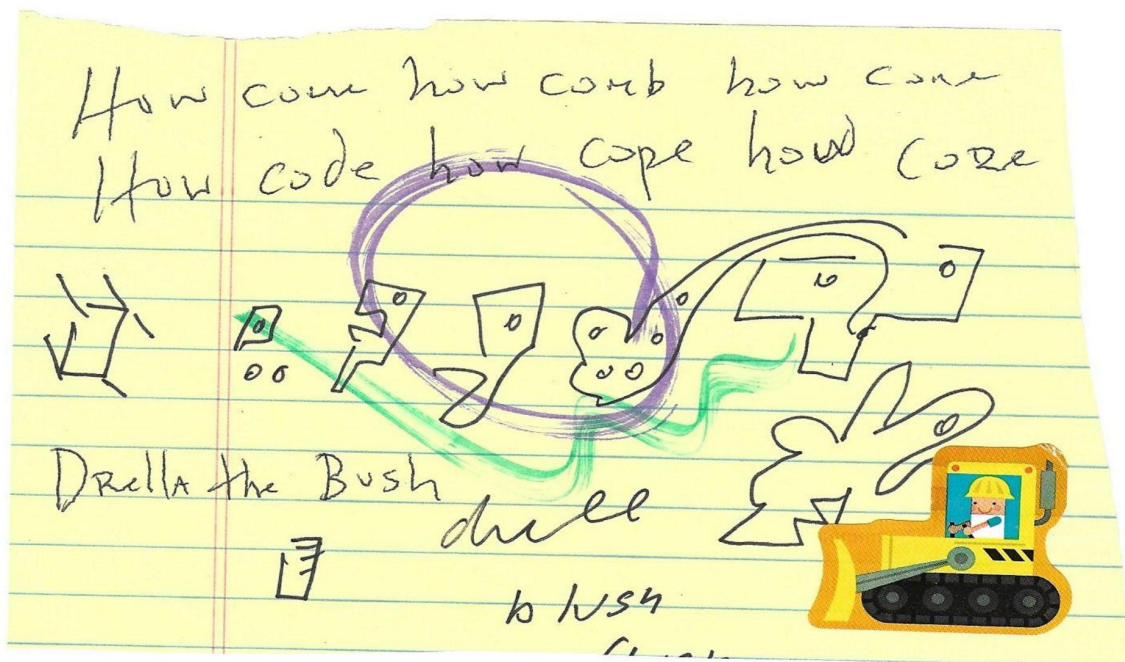 How come how comb how cone
How code how cope how
DRella the Bush
blush